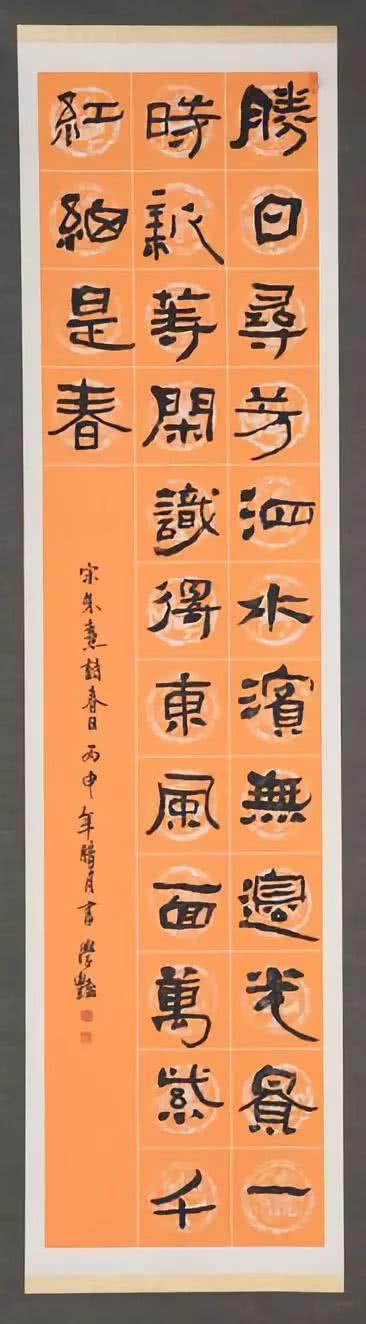 勝日尋芳泗水濱無邊光景一
時新等閑識得東風面萬紫千
紅總是春
宋朱熹詩春日丙申年臘月書學豔